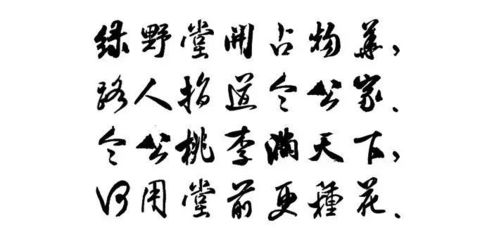 绿野堂開占物華，
路人指道令公家．
令公桃李满天下，
何用堂前更種花．